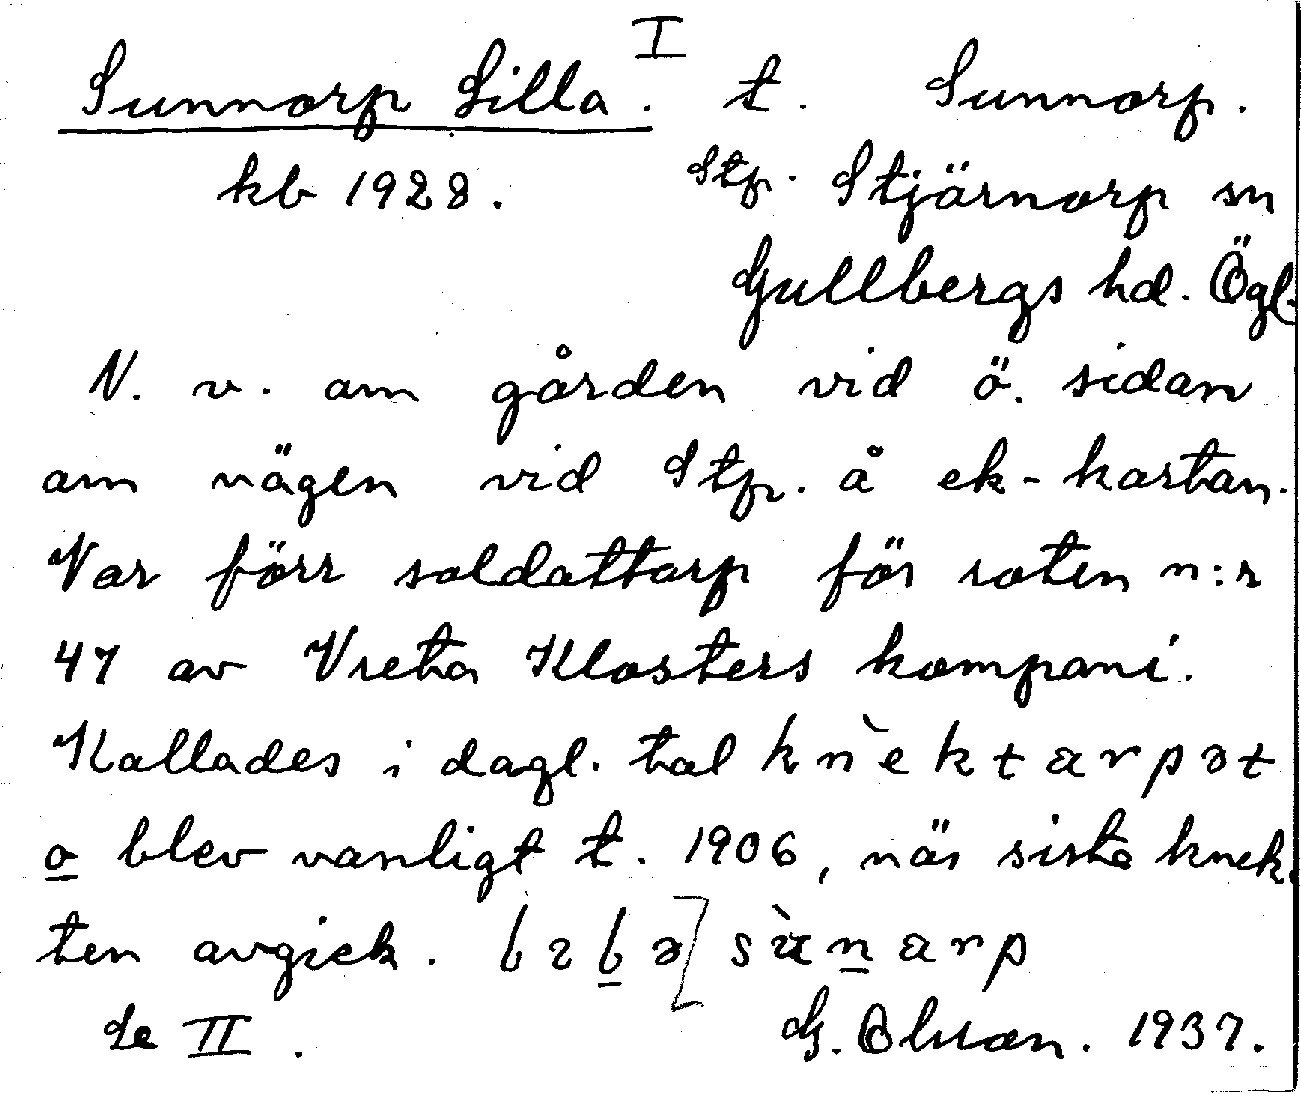 I
Sunnorp Lilla. t. Sunnorp.
kb 1928. Stp. Stjärnorp sn
Gullbergs hd. Ögl.
N. v. om gården vid ö. sidan
om vägen vid Stp. å ek-kartan.
Var förr soldattorp för roten n:r
47 av Vreta Klosters kompani.
Kallades i dagl. tal knèktarpət
o blev vanligt t. 1906, när sista knek-
ten avgick. sùnarp
Se II. G. Olsson. 1937.